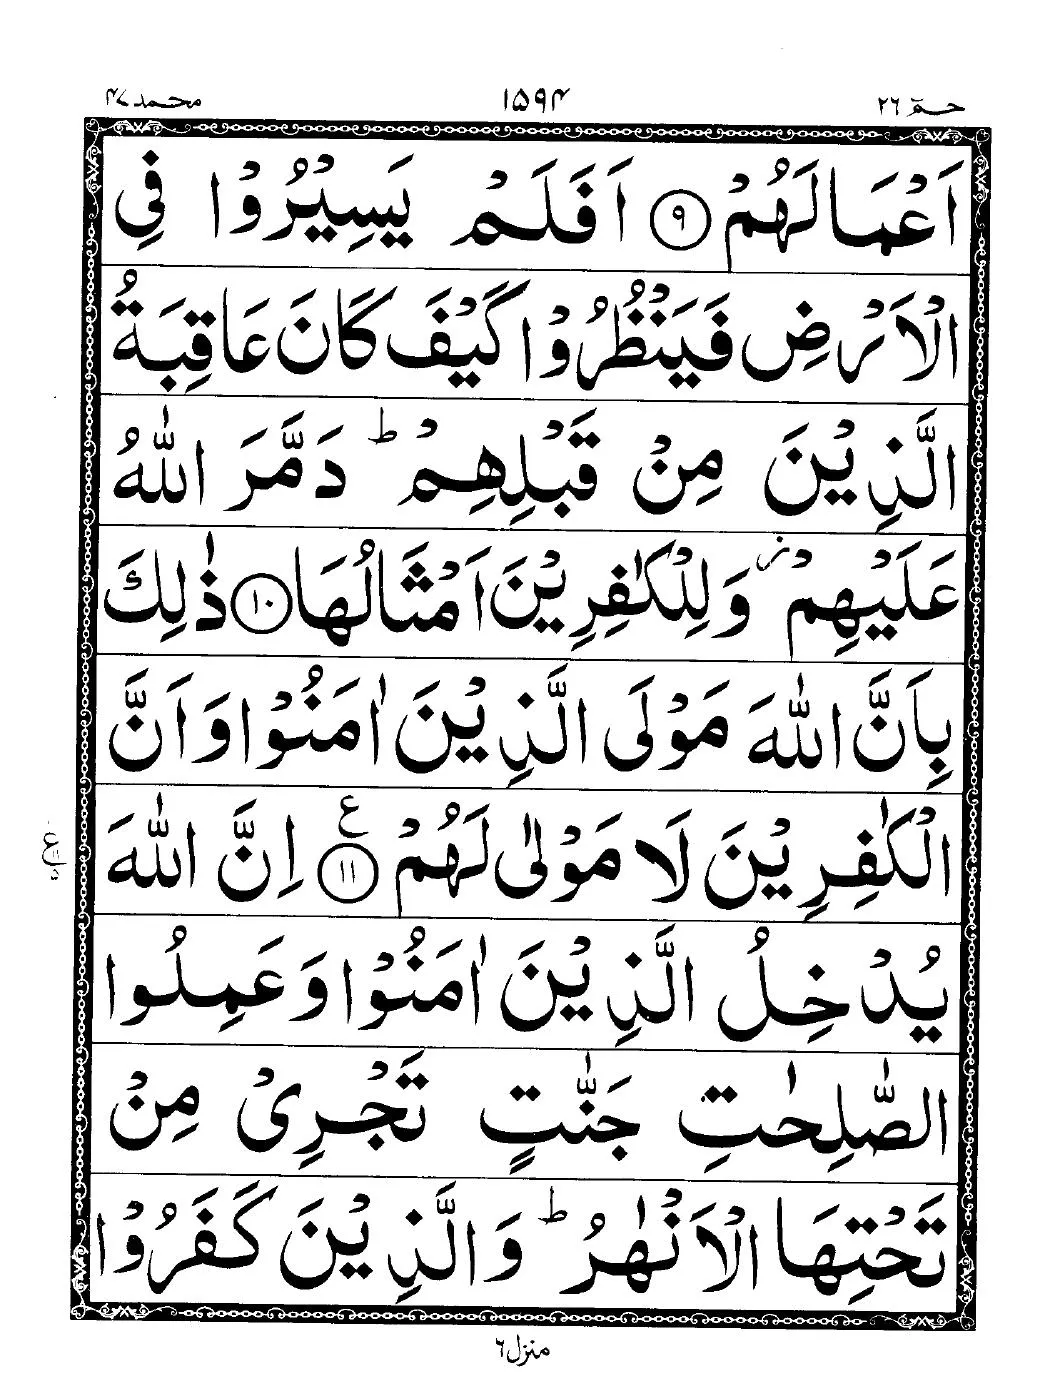 حٰمٓ ٢٦ ١٥٩٤ محمد ٤٧
اَعْمَالَهُمْ ۹ اَفَلَمْ يَسِيْرُوْا فِي
الْاَرْضِ فَيَنْظُرُوْا كَيْفَ كَانَ عَاقِبَةُ
الَّذِيْنَ مِنْ قَبْلِهِمْ ؕ دَمَّرَ اللّٰهُ
عَلَيْهِمْ ؗ وَلِلْكٰفِرِيْنَ اَمْثَالُهَا ۱۰ ذٰلِكَ
بِاَنَّ اللّٰهَ مَوْلَى الَّذِيْنَ اٰمَنُوْا وَاَنَّ
الْكٰفِرِيْنَ لَا مَوْلٰى لَهُمْ ۱۱ ع اِنَّ اللّٰهَ
يُدْخِلُ الَّذِيْنَ اٰمَنُوْا وَعَمِلُوا
الصّٰلِحٰتِ جَنّٰتٍ تَجْرِيْ مِنْ
تَحْتِهَا الْاَنْهٰرُ ؕ وَالَّذِيْنَ كَفَرُوْا
منزل ٦